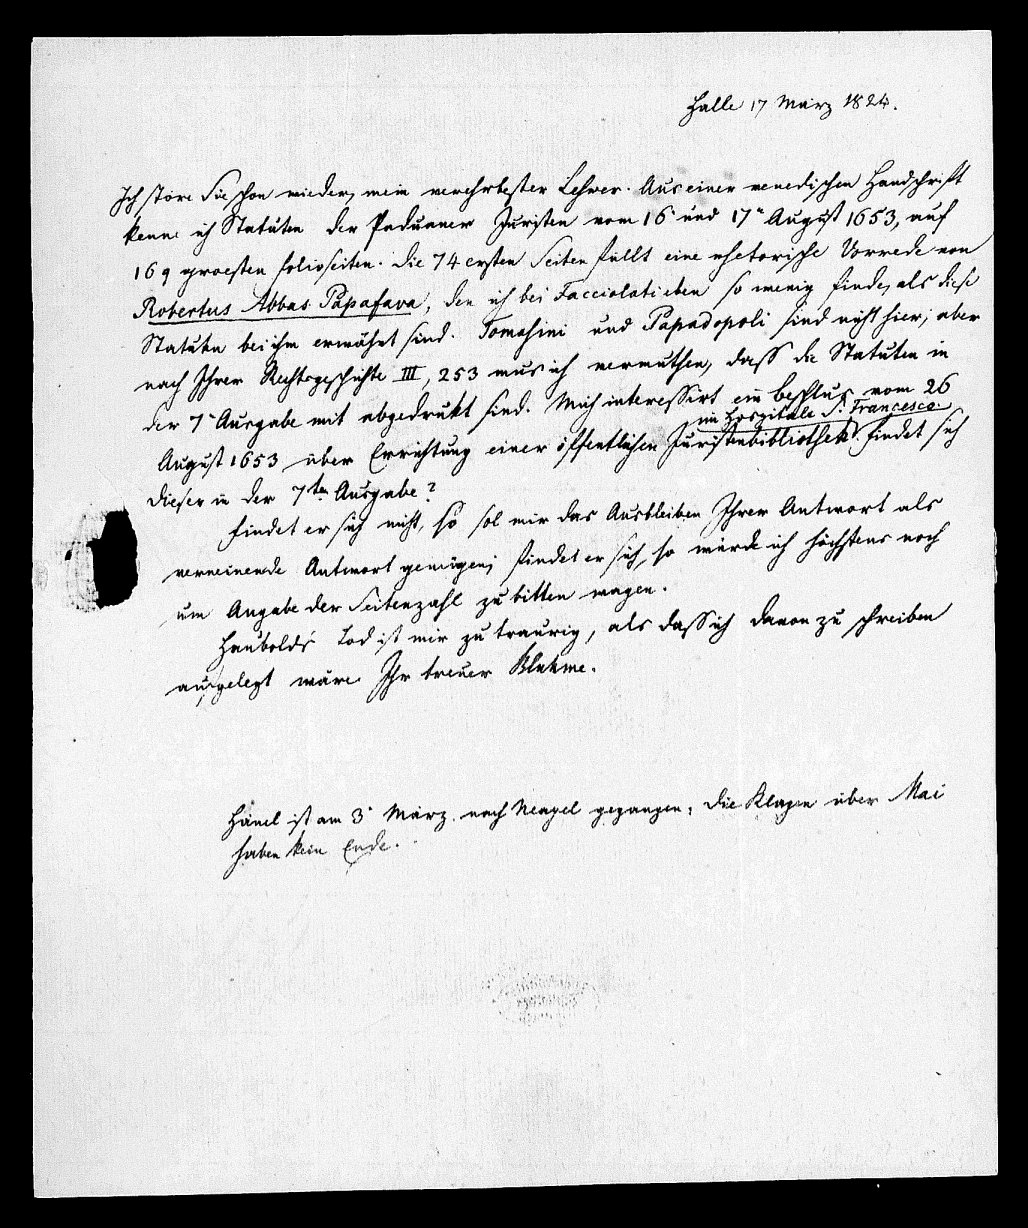 Halle 17 März 1824.
Ich störe Sie schon wieder, mein verehrtester Lehrer. Aus einer venedischen Handschrift
kenne ich Statuten der Paduaner Juristen vom 16ⁿ und 17ⁿ August 1653, auf
169 groesten Folioseiten. Die 74 ersten Seiten füllt eine rhetorische Vorrede von
Robertus Abbas Papafava, den ich bei Facciolati eben so wenig finde, als diese
Statuten bei ihm erwähnt sind. Tomasini und Papadopoli sind nicht hier; aber
nach Ihrer Rechtsgeschichte III, 253 mus ich vermuthen, dass die Statuten in
der 7ⁿ Ausgabe mit abgedrukt sind. Mich interessirt ein Beschlus vom 26
im Hospitale S. Francesco
August 1653 über Errichtung einer öffentlichen Juristenbibliothek. Findet sich
dieser in der 7ten Ausgabe?
Findet er sich nicht, so sol mir das Ausbleiben Ihrer Antwort als
verneinende Antwort genügen; findet er sich, so würde ich höchstens noch
um Angabe der Seitenzahl zu bitten wagen.
Haubolds Tod ist mir zu traurig, als dass ich davon zu schreiben
aufgelegt wäre. Ihr treuer Bluhme.
Hänel ist am 3ⁿ März nach Neapel gegangen; die Klagen über Mai
haben kein Ende.